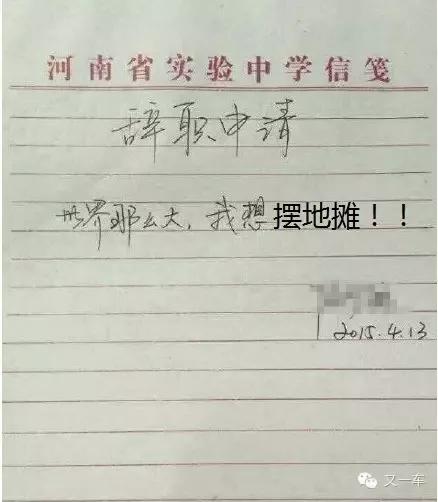 河南省实验中学信笺
辞职申请
世界那么大，我想摆地摊！！
2015.4.13
又一车